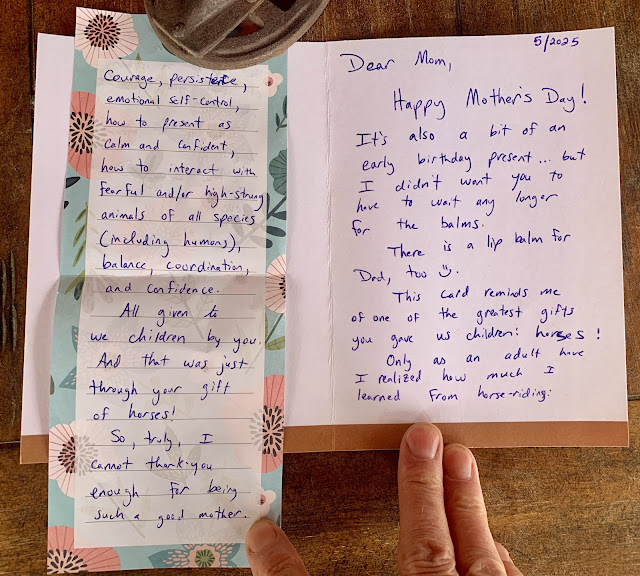 5/2025
Dear Mom,
Happy Mother's Day!
It's also a bit of an
early birthday present... but
I didn't want you to
have to wait any longer
for the balms.
There is a lip balm for
Dad, too ☺.
This card reminds me
of one of the greatest gifts
you gave us children: horses!
Only as an adult have
I realized how much I
learned from horse-riding:
Courage, persistence,
emotional self-control,
how to present as
calm and confident,
how to interact with
fearful and/or high-strung
animals of all species
(including humans),
balance, coordination,
and confidence.
All given to
we children by you.
And that was just
through your gift
of horses!
So, truly, I
cannot thank you
enough for being
such a good mother.